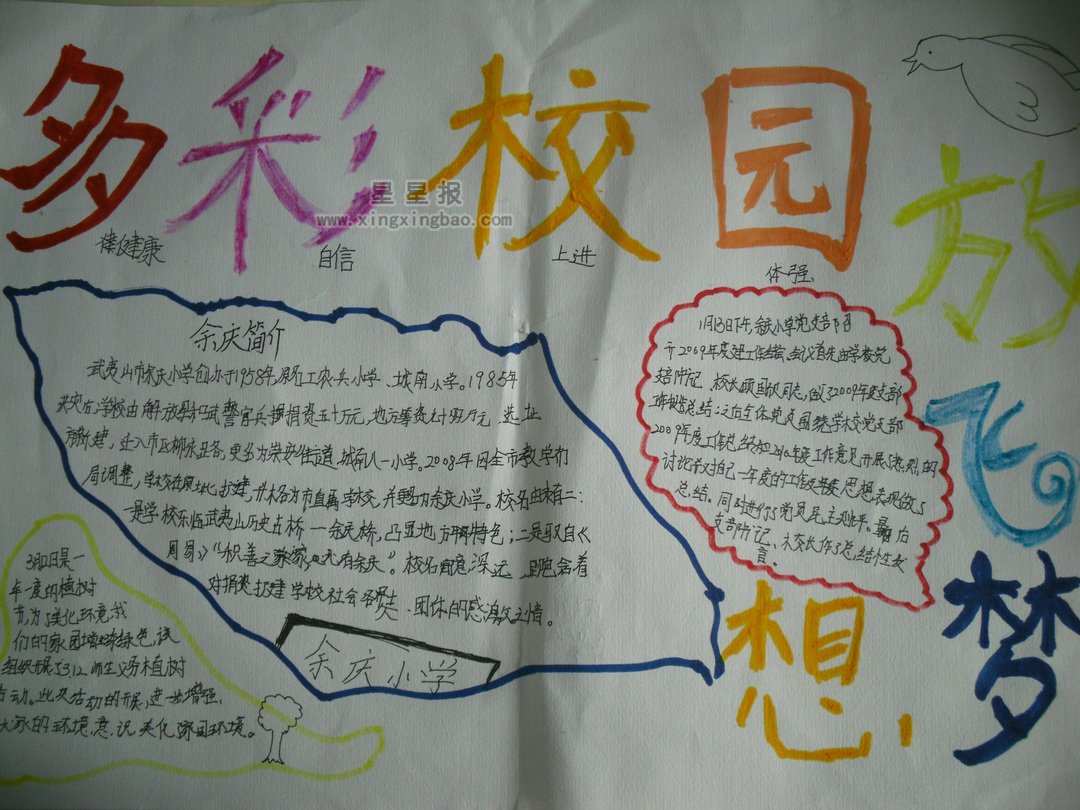 多彩校园
放飞梦想
星星报
www.xingxingbao.com
健康
自信
上进
体强
余庆简介
武夷山市余庆小学创办于1958年,原名工农兵小学、城南小学。1985年
学校由解放军武警官兵捐资五十万元,地方筹资七十万元 选址
新建,更名为崇安街道城南小学。2008年因全市教学布
局调整,学校在原址扩建,并升格为市直属学校,并更名为余庆小学。校名由来有二:
一是学校乐临武夷山历史古桥一余庆桥,凸显地方特色;二是取自《
周易》“积善之家,必有余庆”。校名寓意深远,包含着
对捐资扩建学校社会各界人士、团体的感激之情。
余庆小学
1月13日下午,余庆小学党支部召
开2009年度党建工作总结会,会议首先由学校党
支部书记、校长顾国钦同志,做了2009年度支部
工作总结;之后全体党员围绕学校党支部
2009年度工作总结和2010年度工作意见开展了热烈的
讨论,书记一年度的工作及思想表现做了
总结。同时进行了党员民主测评。最后
支部书记、校长作了总结性发
言。
3月12日是一
年一度的植树
节,为了美化环境,我
们的家园增添绿色,试
组织开展了3.12师生义务植树
活动。此次活动的开展,进一步增强
大家的环境意识 美化家园环境。